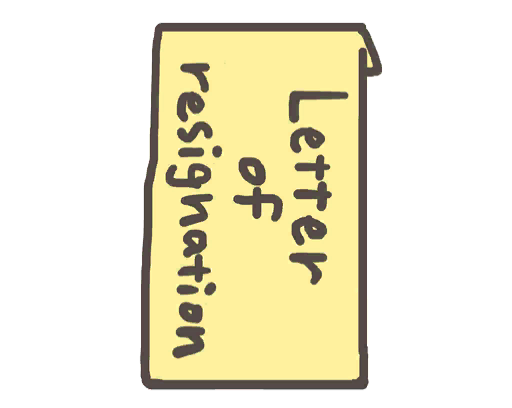 Letter
of
resignation